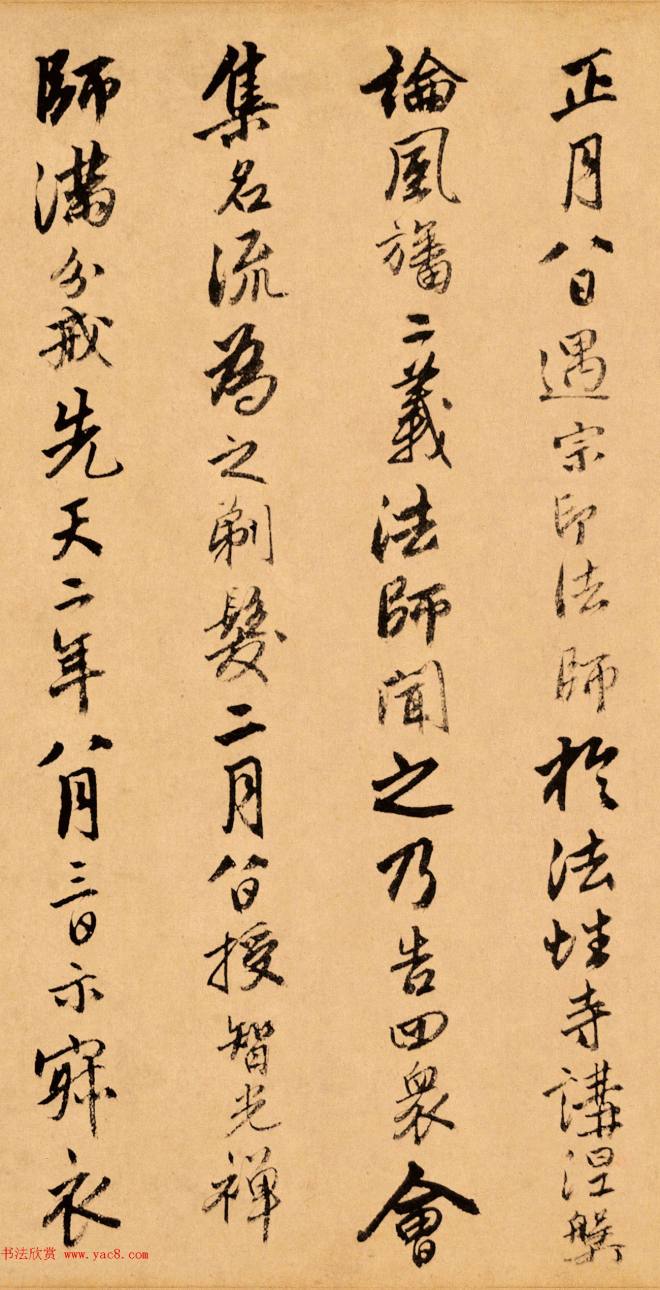 正月八日遇宗印法師於法性寺講涅槃
論風旛二義法師聞之乃告四衆會
集名流為之剃髮二月八日授智光禪
師滿分戒先天二年八月三日示寂衣
书法欣赏 www.yac8.com